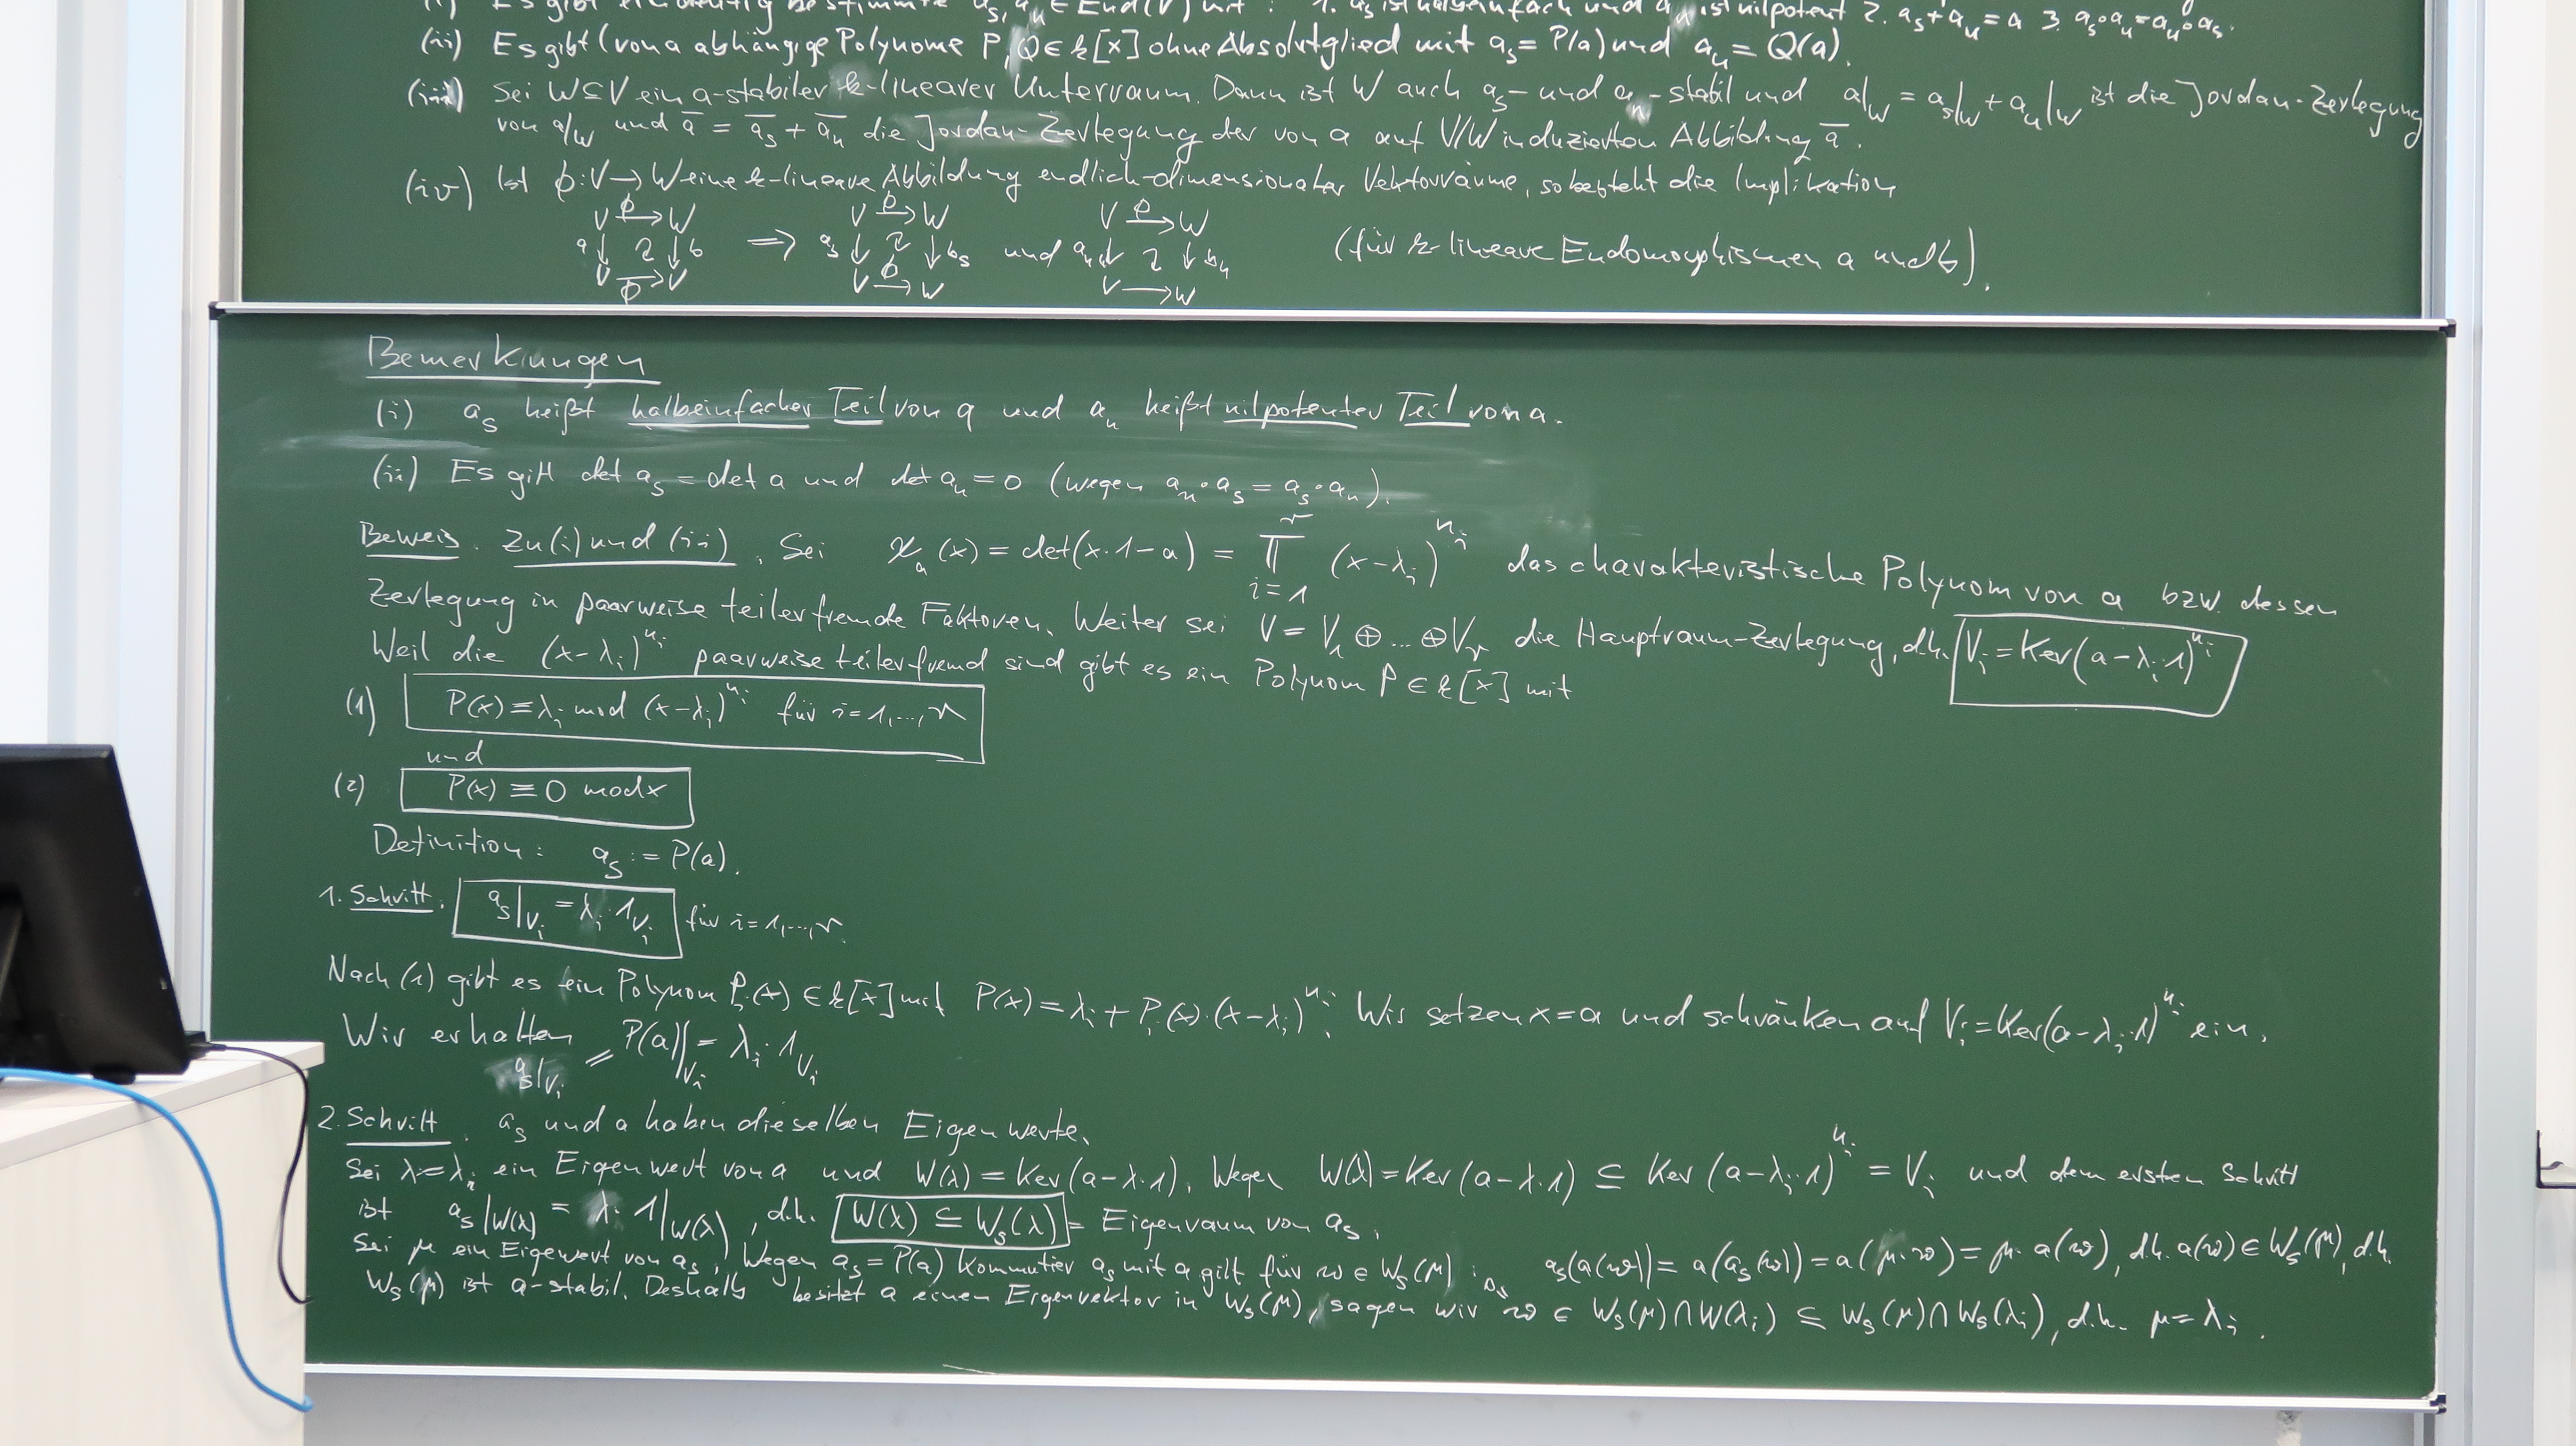 (i) Es gibt eindeutig bestimmte a_s, a_n ∈ End(V) mit : 1. a_s ist halbeinfach und a_n ist nilpotent 2. a_s + a_n = a 3. a_s∘a_n = a_n∘a_s.
(ii) Es gibt (von a abhängige Polynome P, Q ∈ k[x] ohne Absolutglied mit a_s = P(a) und a_n = Q(a).
(iii) Sei W ⊆ V ein a-stabiler k-linearer Unterraum. Dann ist W auch a_s- und a_n-stabil und a|_W = a_s|_W + a_n|_W ist die Jordan-Zerlegung
von a|_W und ā = ā_s + ā_n die Jordan-Zerlegung der von a auf V/W induzierten Abbildung ā.
(iv) Ist ϕ: V → W eine k-lineare Abbildung endlich-dimensionaler Vektorräume, so besteht die Implikation
V ϕ→ W V ϕ→ W V ϕ→ W
a↓ ↓b ⇒ a_s↓ ↓b_s und a_n↓ ↓b_n (für k-lineare Endomorphismen a und b).
V →ϕ V V ϕ→ W V → W
Bemerkungen
(i) a_s heißt halbeinfacher Teil von a und a_n heißt nilpotenter Teil von a.
(ii) Es gilt det a_s = det a und det a_n = 0 (wegen a_n∘a_s = a_s∘a_n).
Beweis. Zu (i) und (ii). Sei χ_a(x) = det(x·1-a) = ∏_{i=1}^r (x-λ_i)^{n_i} das charakteristische Polynom von a bzw. dessen
Zerlegung in paarweise teilerfremde Faktoren. Weiter sei V = V_1 ⊕ ... ⊕ V_r die Hauptraum-Zerlegung, d.h. V_i = Ker(a-λ_i·1)^{n_i}
Weil die (x-λ_i)^{n_i} paarweise teilerfremd sind gibt es ein Polynom P ∈ k[x] mit
(1) P(x) ≡ λ_i mod (x-λ_i)^{n_i} für i=1,...,r
und
(2) P(x) ≡ 0 mod x
Definition: a_s := P(a).
1. Schritt. a_s|_{V_i} = λ_i·1_{V_i} für i=1,...,r.
Nach (1) gibt es ein Polynom P_i(x) ∈ k[x] mit P(x) = λ_i + P_i(x)·(x-λ_i)^{n_i}. Wir setzen x=a und schränken auf V_i = Ker(a-λ_i·1)^{n_i} ein.
Wir erhalten P(a)|_{V_i} = λ_i·1_{V_i}
a_s|_{V_i} =
2. Schritt. a_s und a haben dieselben Eigenwerte.
Sei λ=λ_i ein Eigenwert von a und W(λ) = Ker(a-λ·1). Wegen W(λ) = Ker(a-λ·1) ⊆ Ker(a-λ_i·1)^{n_i} = V_i und dem ersten Schritt
ist a_s|_{W(λ)} = λ·1|_{W(λ)}, d.h. W(λ) ⊆ W_s(λ) = Eigenraum von a_s.
Sei μ ein Eigewert von a_s. Wegen a_s = P(a) kommutier a_s mit a gilt für w ∈ W_s(μ): a_s(a(w)) = a(a_s(w)) = a(μ·w) = μ·a(w), d.h. a(w) ∈ W_s(μ), d.h.
W_s(μ) ist a-stabil. Deshalb besitzt a einen Eigenvektor in W_s(μ), sagen wir w ∈ W_s(μ)∩W(λ_i) ⊆ W_s(μ)∩W_s(λ_i), d.h. μ=λ_i.